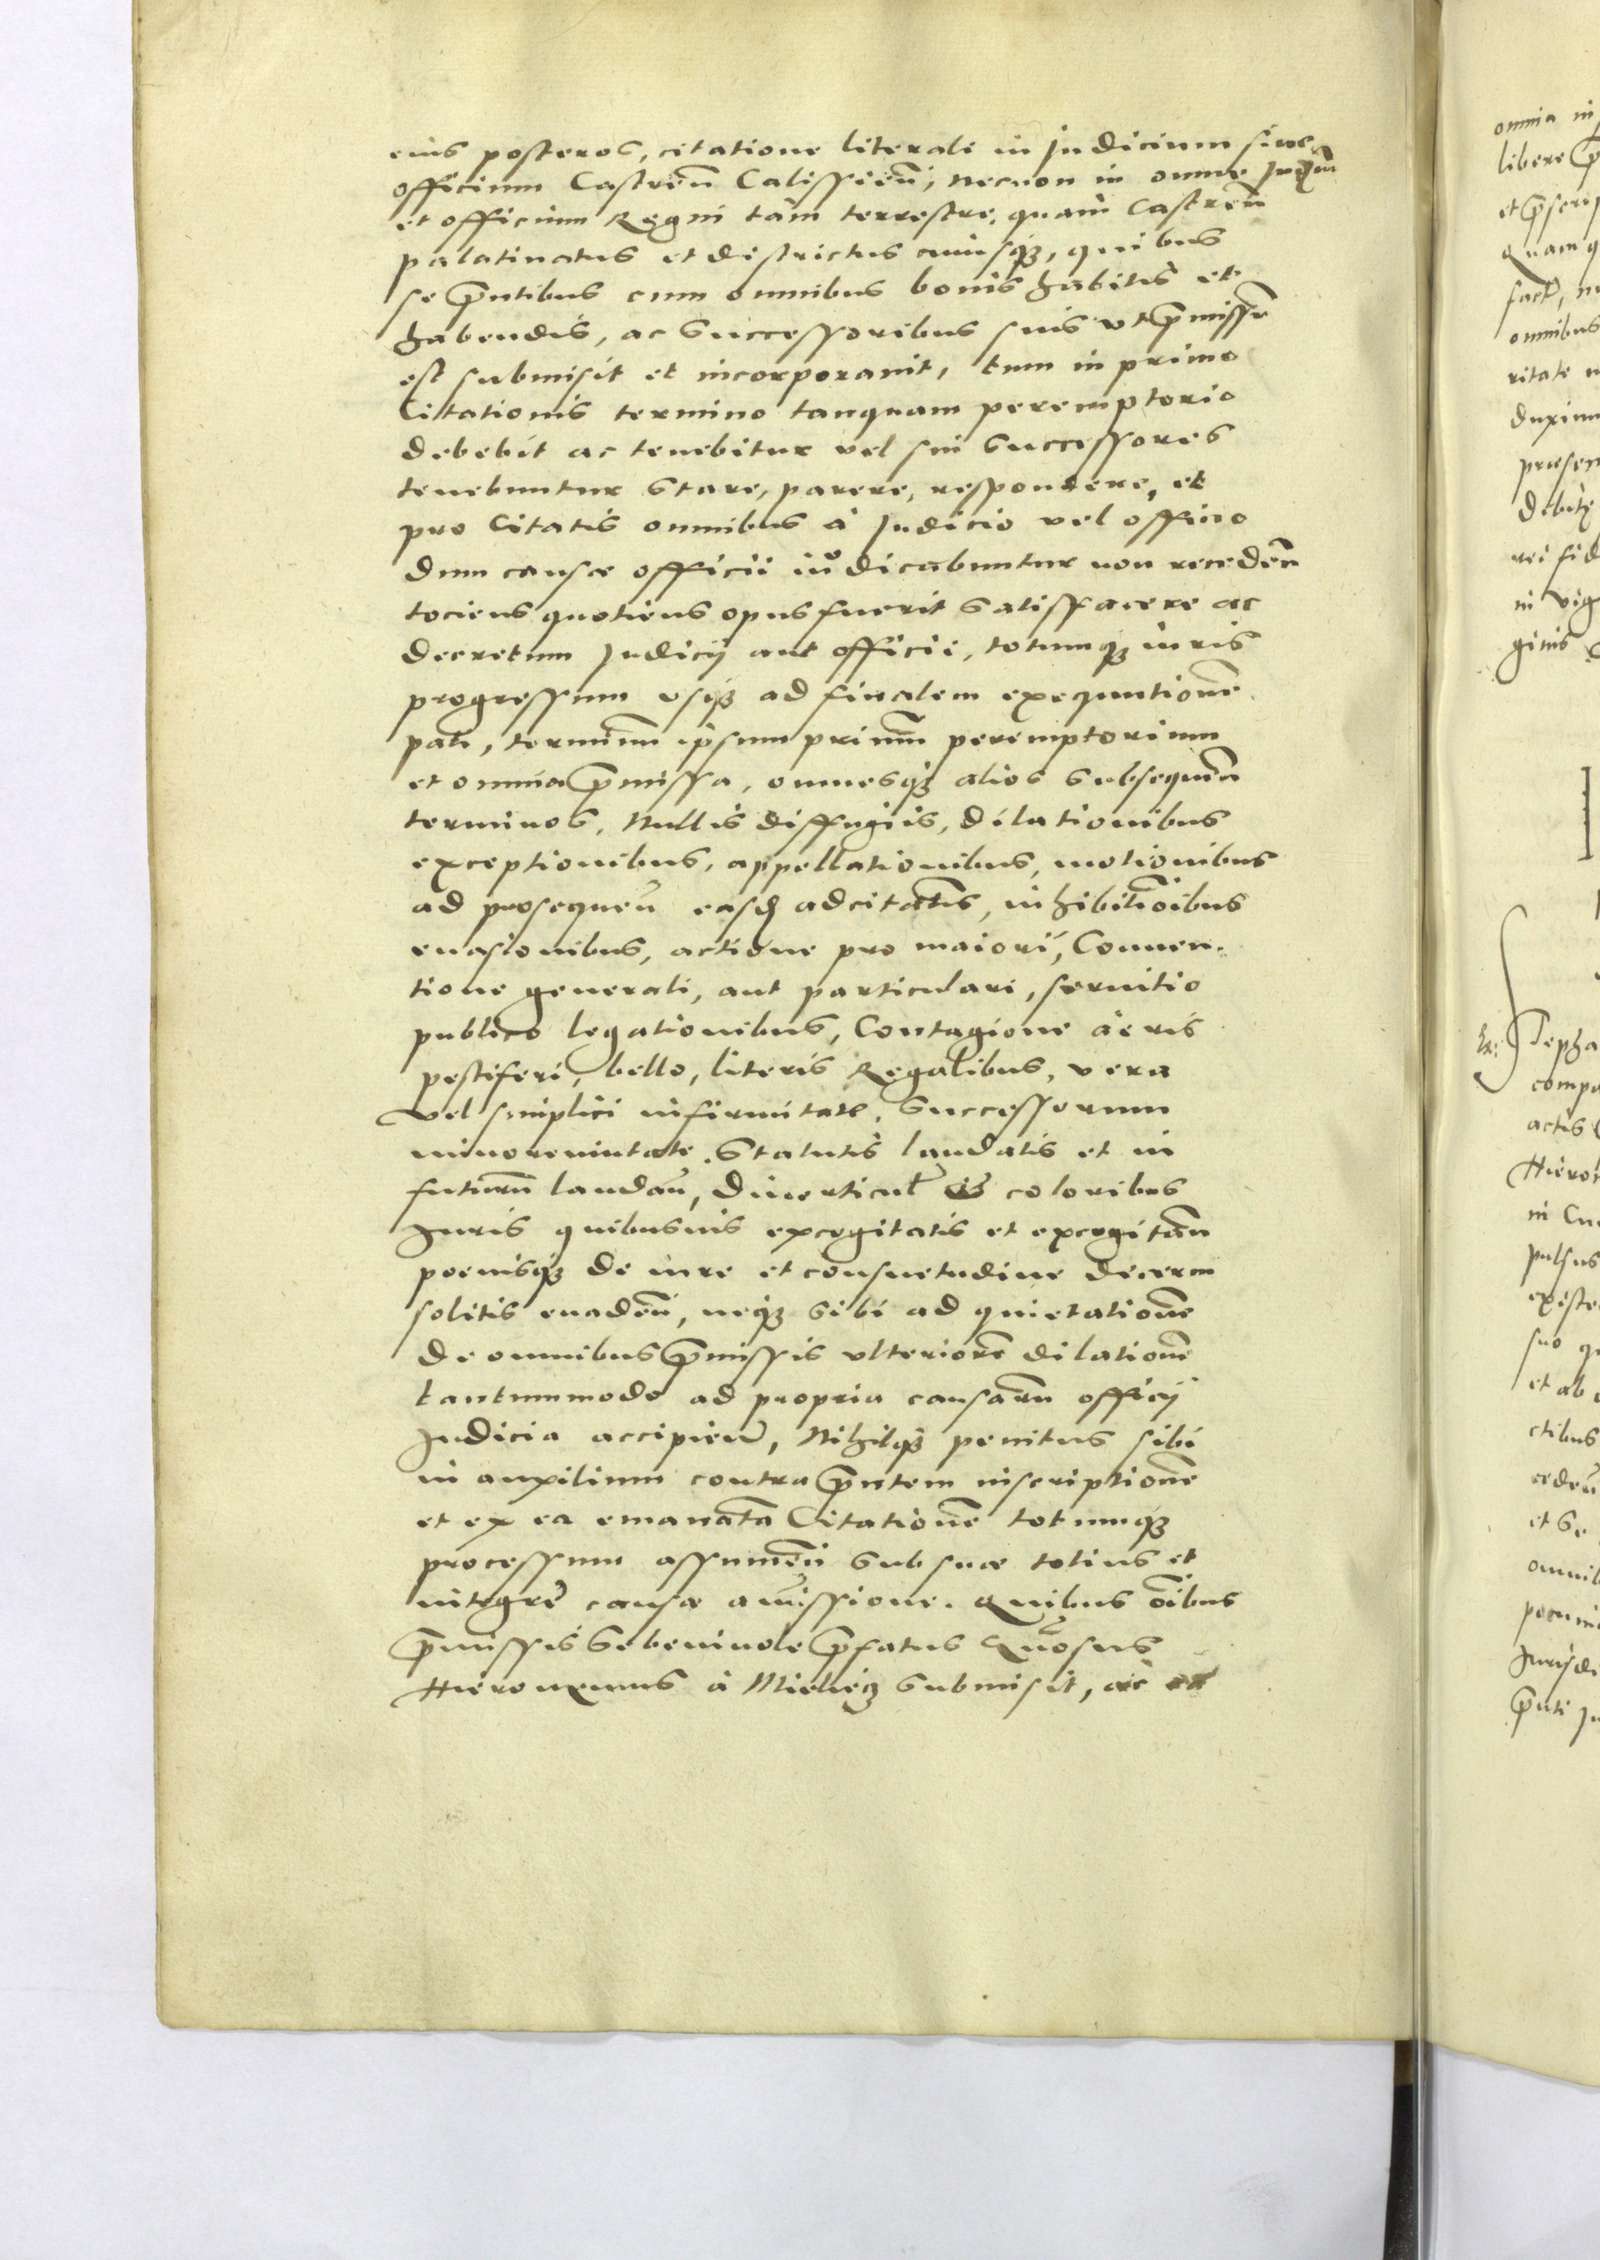 eius posteros, citatione literali in Judicium sive
officium Castreñ Calissieñ, necnon in omne Judm
et officium Regni tam terrestre, quam Castreñ
palatinatus et districtus cuiusq3, quibus
se p̄ntibus cum omnibus bonis habitis et
habendis, ac Successoribus suis vt p̄missũ
est submisit et incorporavit, tum in primo
Citationis termino tanquam peremptorio
debebit ac tenebitur vel sui Successores
tenebuntur Stare, parere, respondere, et
pro Citatis omnibus à Judicio vel officio
dum causæ officii iudicabuntur non recedeñ
tociens quotiens opus fuerit Satisfacere ac
decretum Judicij aut officii, totumq3 iuris
progressum vsq3 ad finalem exequutionē
pati, terminũ ipsum primũ peremptorium
et omnia p̄missa, omnesq3 alios Subsequeñ
terminos, Nullis diffugiis, dilationibus
exceptionibus, appellationibus, motionibus
ad prosequeñ easd adcitatīs, inhibitiōibus
evasionibus, actione pro maiori, Conven-
tione generali, aut particulari, servitio
publico legationibus, Contagione aëris
pestiferi, bello, literis Regalibus, vera
vel simplici infirmitate, Successorum
minorennitate, Statutis laudatis et in
futurũ laudañ, diverticul' coloribus
Juris quibusvis excogitatis et excogitañ
poenisq3 de iure et consuetudine decerni
solitis evadeñ, neq3 sibi ad quietationē
de omnibus p̄missis vlteriorē dilationē
tantummodo ad propria causarũ officij
Judicia accipieñ, Nihilq3 penitus sibi
in auxilium contra p̄ntem inscriptionē
et ex ea emanatā Citationē totumq3
processum assumeñ Sub suæ totius et
integræ causæ amissione. Quibus oībus
p̄missis Se benivole p̄fatus Gñosus
Hieronymus à Mieliq3 Submisit, ac

omnia in
libere
et p̄scrip
Quam q
fact, n
omnibus
ritate
duxim
præsen
debitę
rei fid
in vig
ginis
compa
actis
Hieron
in Cu
pulsus
existe
suo q
et ab
ctibus
cedeñ
et Se
omnib
pecuni
Jurisdi
p̄nti Ju